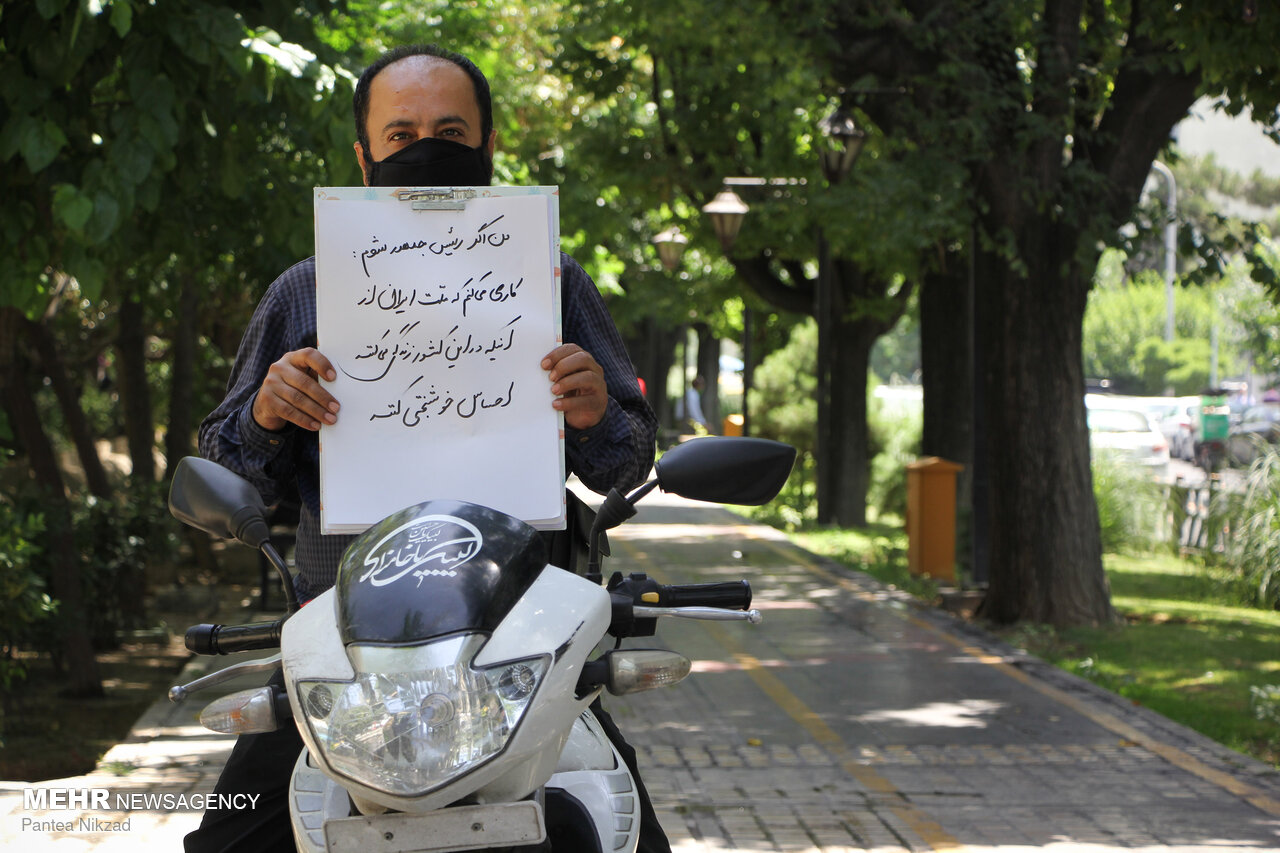 من اگر رئیس جمهور شوم:
کاری می‌کنم که ملت ایران از
اینکه در این کشور زندگی می‌کنند
احساس خوشبختی کنند
MEHR NEWSAGENCY
Pantea Nikzad